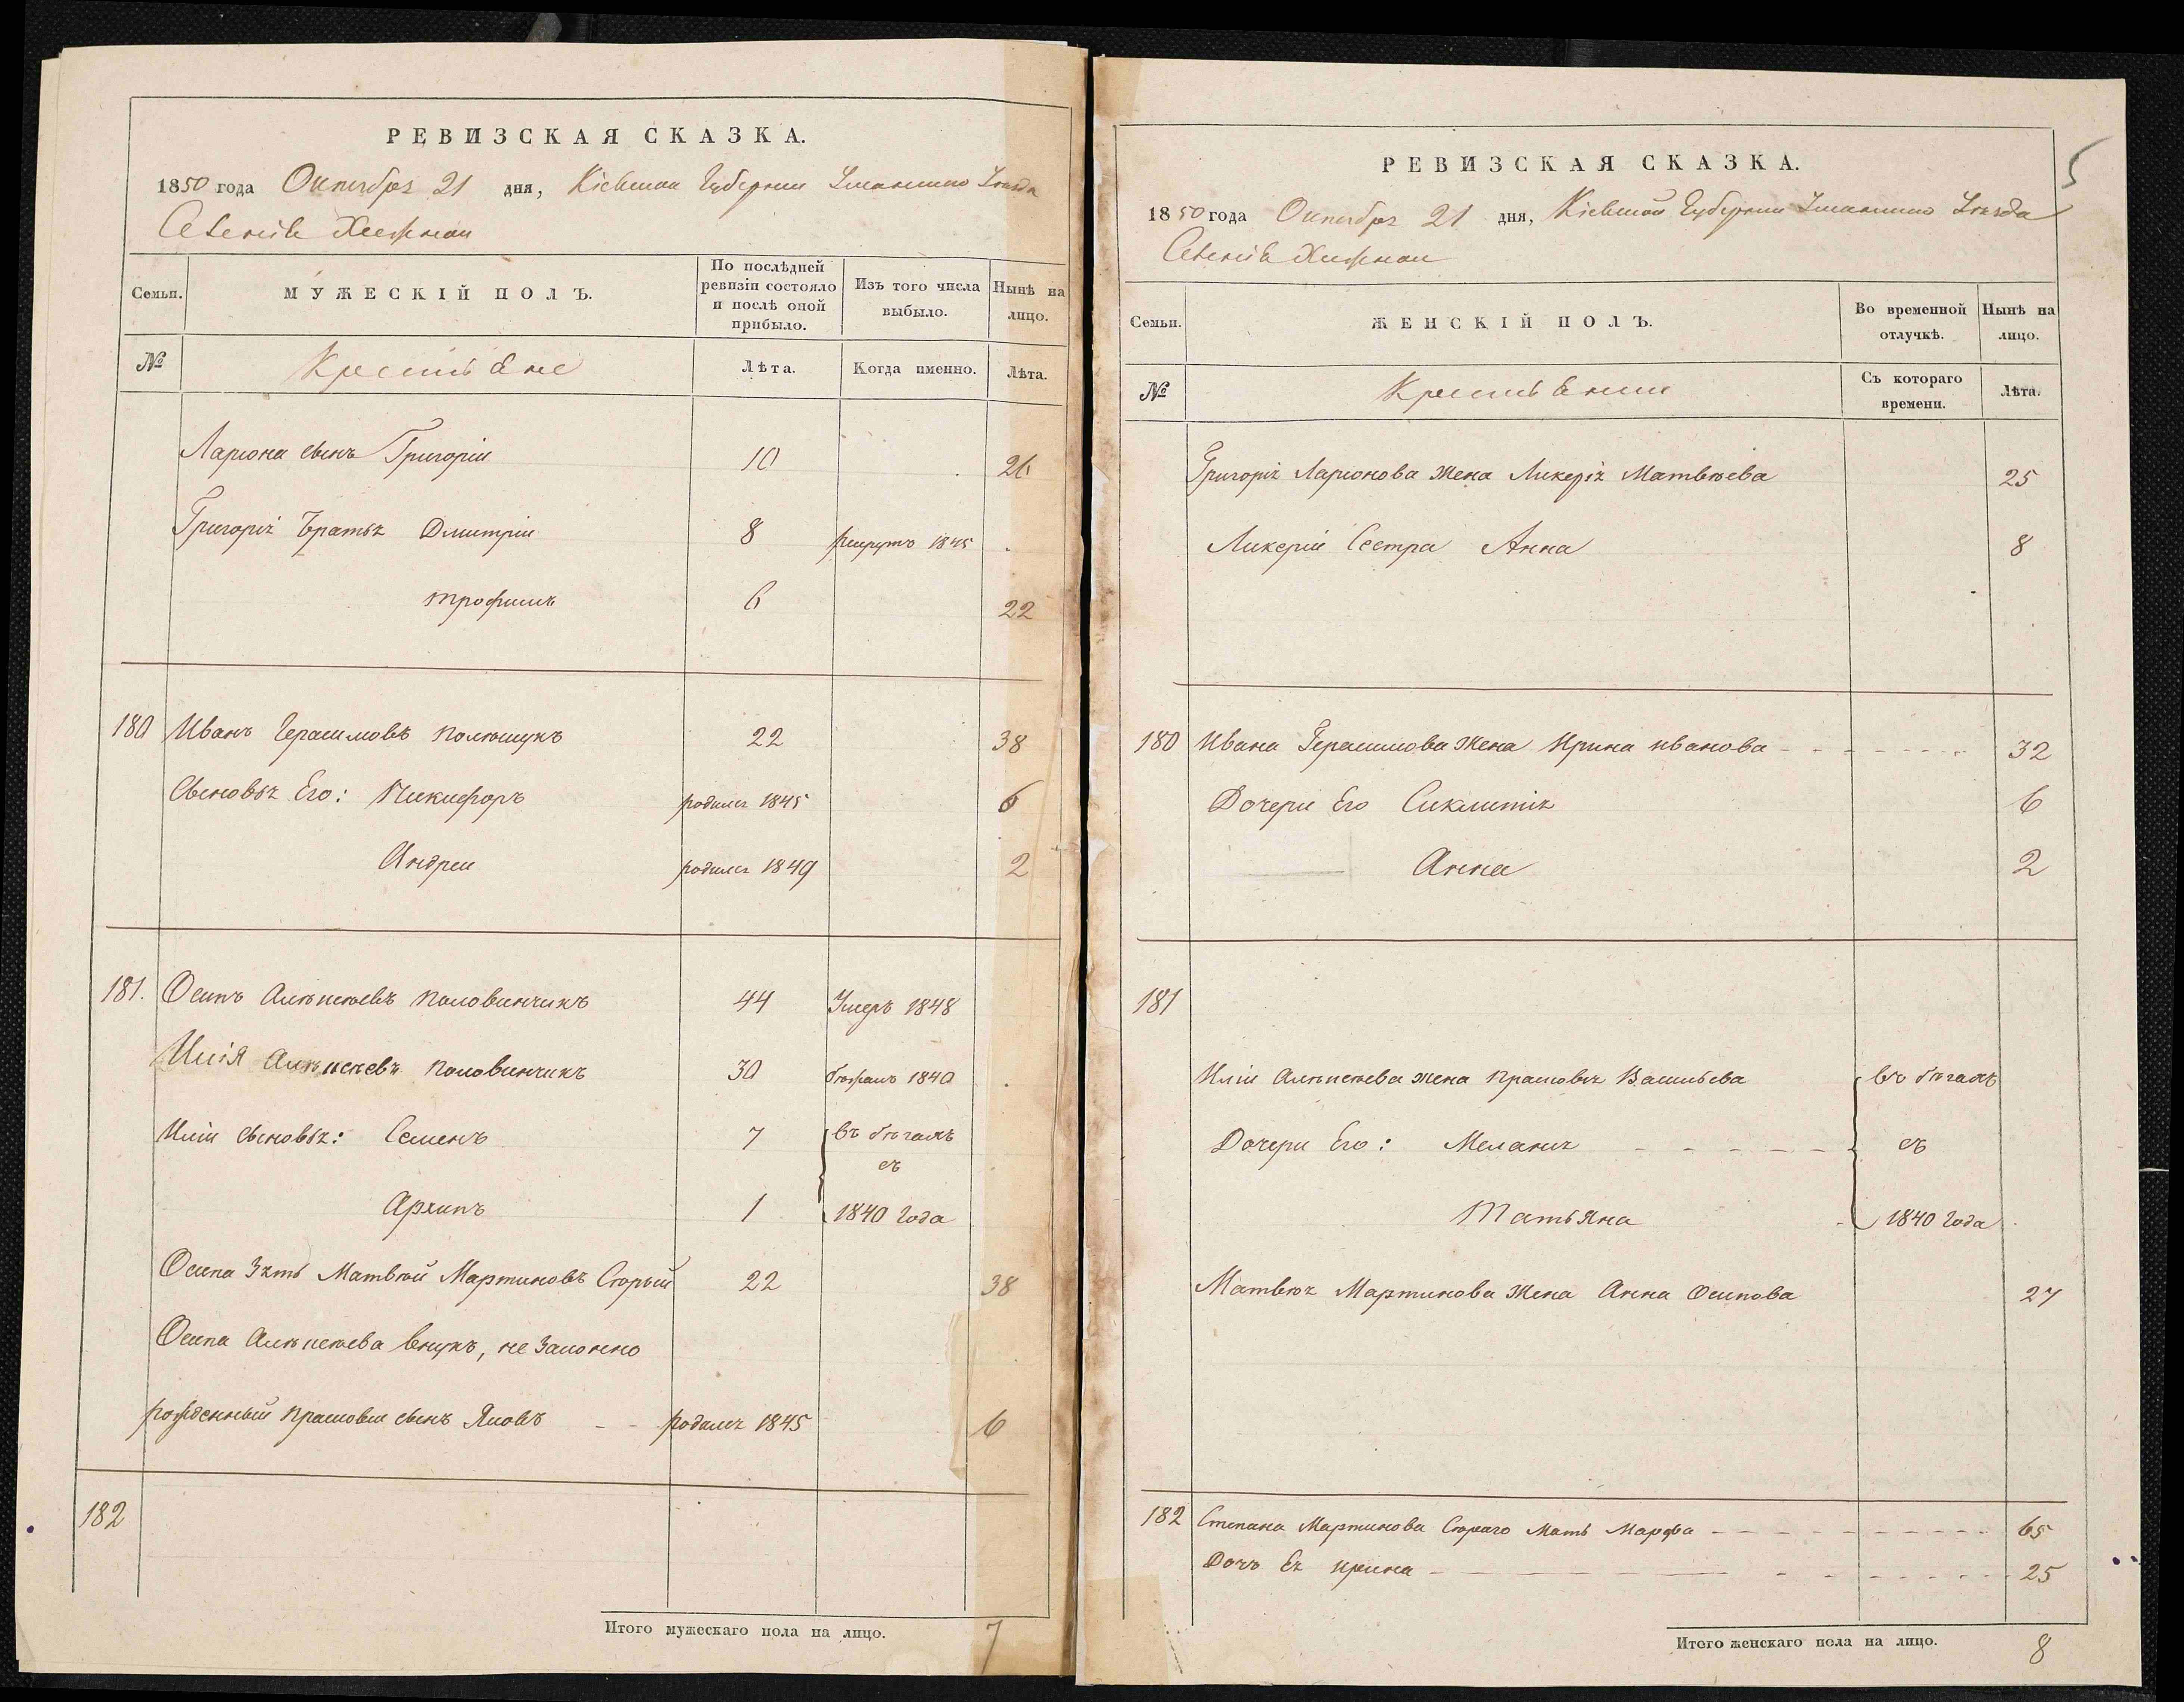 РЕВИЗСКАЯ СКАЗКА.
1850 года Октября 21 дня, Кіевской Губерніи Уманского Уезда
Семьи.
МУЖЕСКІЙ ПОЛЪ.
По послѣдней ревизіи состояло и послѣ оной прибыло.
Изъ того числа выбыло.
Нынѣ на лицо.
№
Крестьяне
Лѣта.
Когда именно.
Лѣта.
Лариона сынъ Григорій 10 26
Григорія Братья Дмитрій 8 рекрутъ 1845
Трофимъ 6 22
180 Иванъ Герасимовъ Полѣщукъ 22 38
Сыновья Его: Никифоръ родился 1845 6
Андрей родился 1849 2
181. Осипъ Алѣксѣевъ Половинчикъ 44 Умеръ 1848
Илія Алѣксѣевъ Половинчикъ 30 бѣжалъ 1840
Иліи сыновья: Семенъ 7 въ бѣгахъ
съ
Архипъ 1 1840 года
Осипа Зять Матвѣй Мартиновъ Сѣрый 22 38
Осипа Алѣксѣева внукъ, не законно
рожденный Прасковіи сынъ Яковъ родился 1845 6
182
Итого мужескаго пола на лицо. 7
5
РЕВИЗСКАЯ СКАЗКА.
1850 года Октября 21 дня, Кіевской Губерніи Уманского Уезда
Семьи.
ЖЕНСКІЙ ПОЛЪ.
Во временной отлучкѣ.
Нынѣ на лицо.
№
Крестьянки
Съ котораго времени.
Лѣта.
Григорія Ларионова Жена Ликерія Матвѣева 25
Ликеріи Сестра Анна 8
180 Ивана Герасимова Жена Ирина Иванова 32
Дочери Его Сиклитія 6
Анна 2
181
Иліи Алѣксѣева жена Прасковья Васильева въ бѣгахъ
Дочери Его: Меланія съ
Татьяна 1840 года
Матвѣя Мартинова Жена Анна Осипова 27
182 Степана Мартинова Сѣраго Мать Марфа 65
Дочь Ея Ирина 25
Итого женскаго пола на лицо. 8